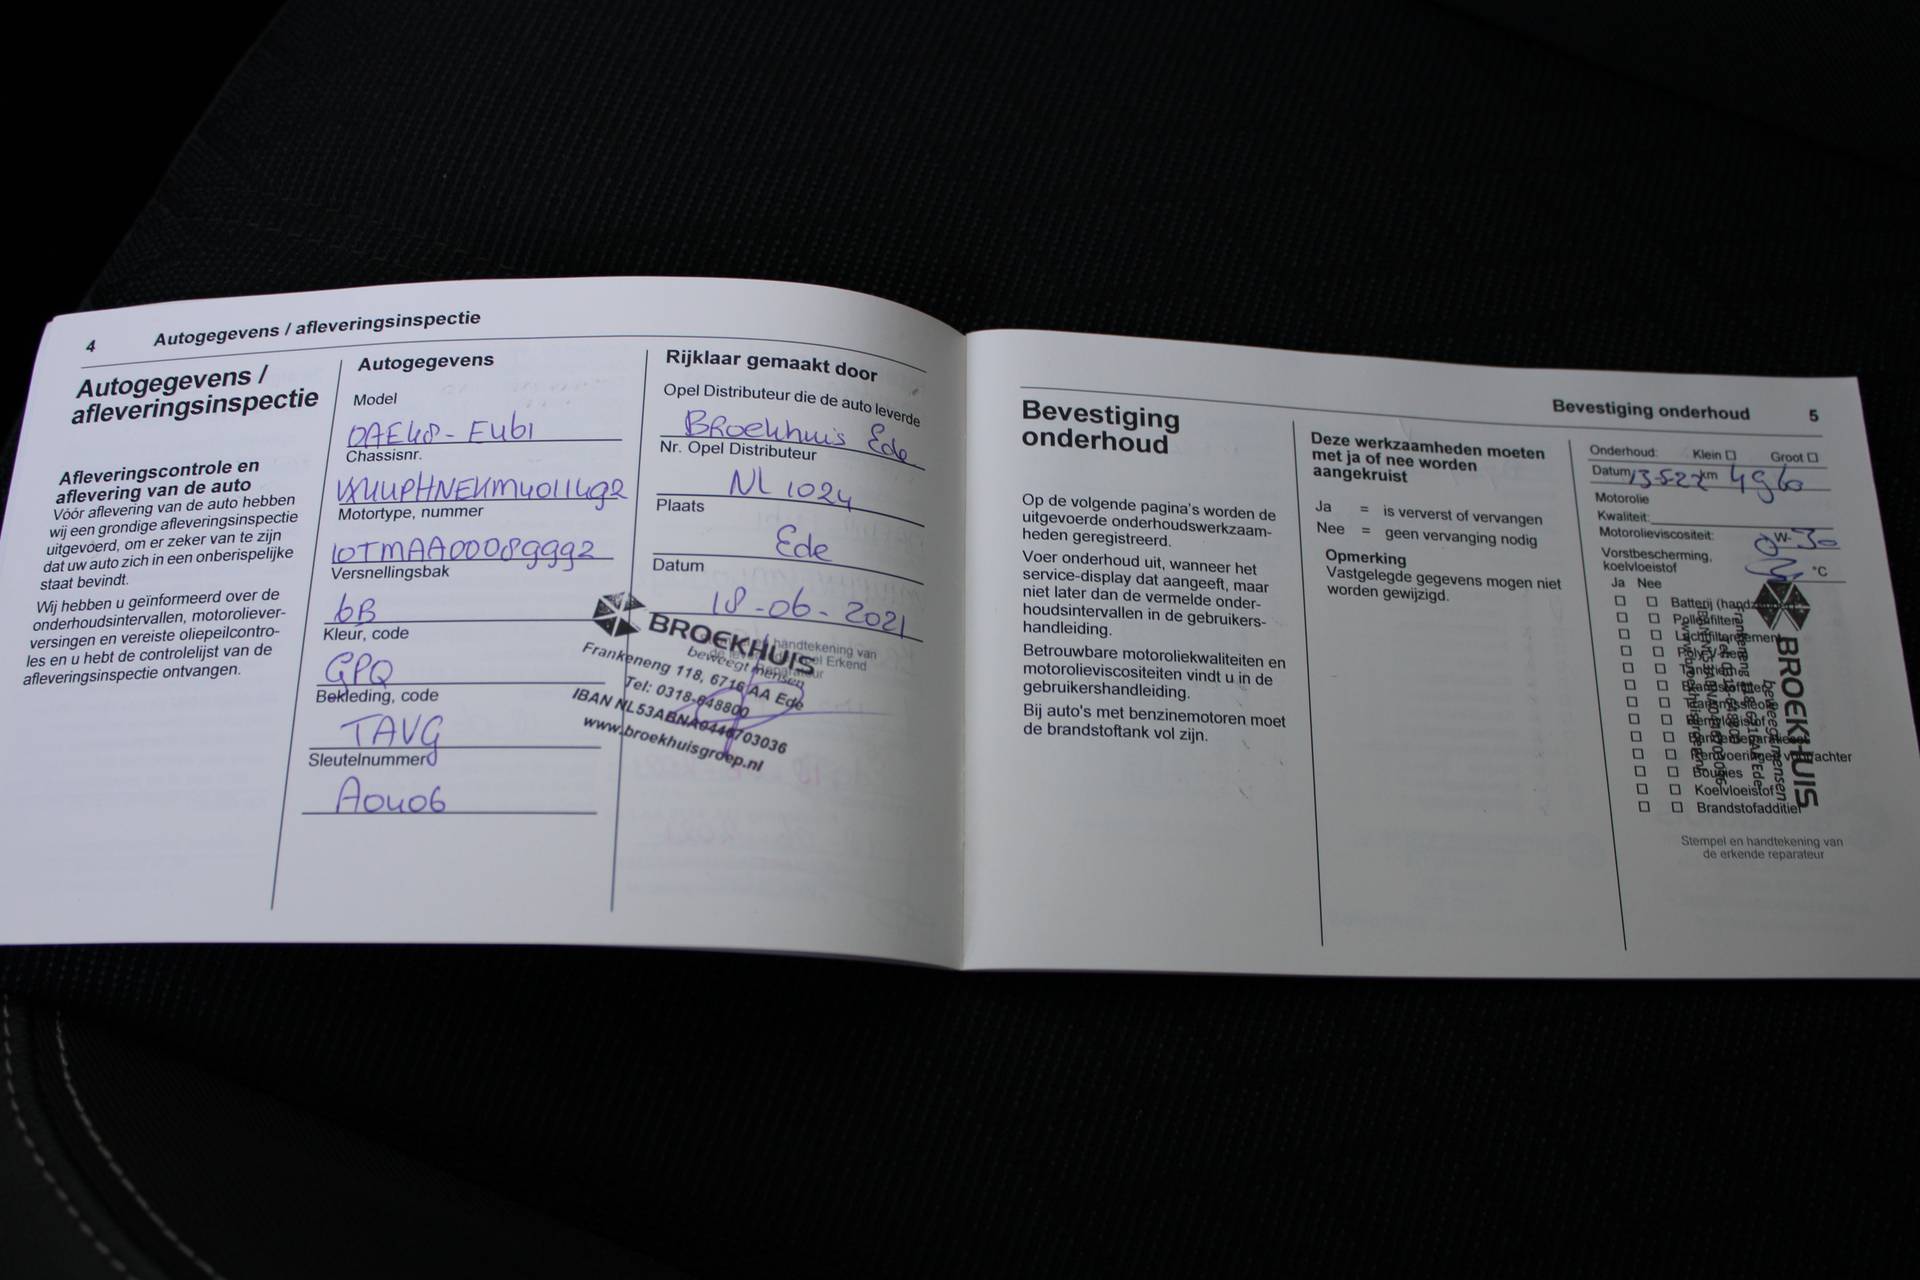 4 Autogegevens / afleveringsinspectie
Autogegevens /
afleveringsinspectie
Afleveringscontrole en
aflevering van de auto
Vóór aflevering van de auto hebben
wij een grondige afleveringsinspectie
uitgevoerd, om er zeker van te zijn
dat uw auto zich in een onberispelijke
staat bevindt.
Wij hebben u geïnformeerd over de
onderhoudsintervallen, motoroliever-
versingen en vereiste oliepeilcontro-
les en u hebt de controlelijst van de
afleveringsinspectie ontvangen.
Autogegevens
Model
Chassisnr.
Motortype, nummer
10TMAA00089992
Versnellingsbak
6B
Kleur, code
GPQ
Bekleding, code
TAVG
Sleutelnummer
A0406
Rijklaar gemaakt door
Opel Distributeur die de auto leverde
Broekhuis Ede
Nr. Opel Distributeur
NL 1024
Plaats
Ede
Datum
18-06-2021
BROEKHUIS
beweegt mensen
Frankeneng 118, 6716 AA Ede
Tel: 0318-648800
IBAN NL53ABNA0446703036
www.broekhuisgroep.nl
Bevestiging onderhoud 5
Bevestiging
onderhoud
Op de volgende pagina's worden de
uitgevoerde onderhoudswerkzaam-
heden geregistreerd.
Voer onderhoud uit, wanneer het
service-display dat aangeeft, maar
niet later dan de vermelde onder-
houdsintervallen in de gebruikers-
handleiding.
Betrouwbare motoroliekwaliteiten en
motorolieviscositeiten vindt u in de
gebruikershandleiding.
Bij auto's met benzinemotoren moet
de brandstoftank vol zijn.
Deze werkzaamheden moeten
met ja of nee worden
aangekruist
Ja = is ververst of vervangen
Nee = geen vervanging nodig
Opmerking
Vastgelegde gegevens mogen niet
worden gewijzigd.
Onderhoud: Klein Groot
Datum 13-5-22 km 4960
Motorolie
Kwaliteit:
Motorolieviscositeit: 0W-30
Vorstbescherming,
koelvloeistof °C
Ja Nee
Batterij
Pollenfilter
Bougies
Koelvloeistof
Brandstofadditief
BROEKHUIS
beweegt mensen
Stempel en handtekening van
de erkende reparateur